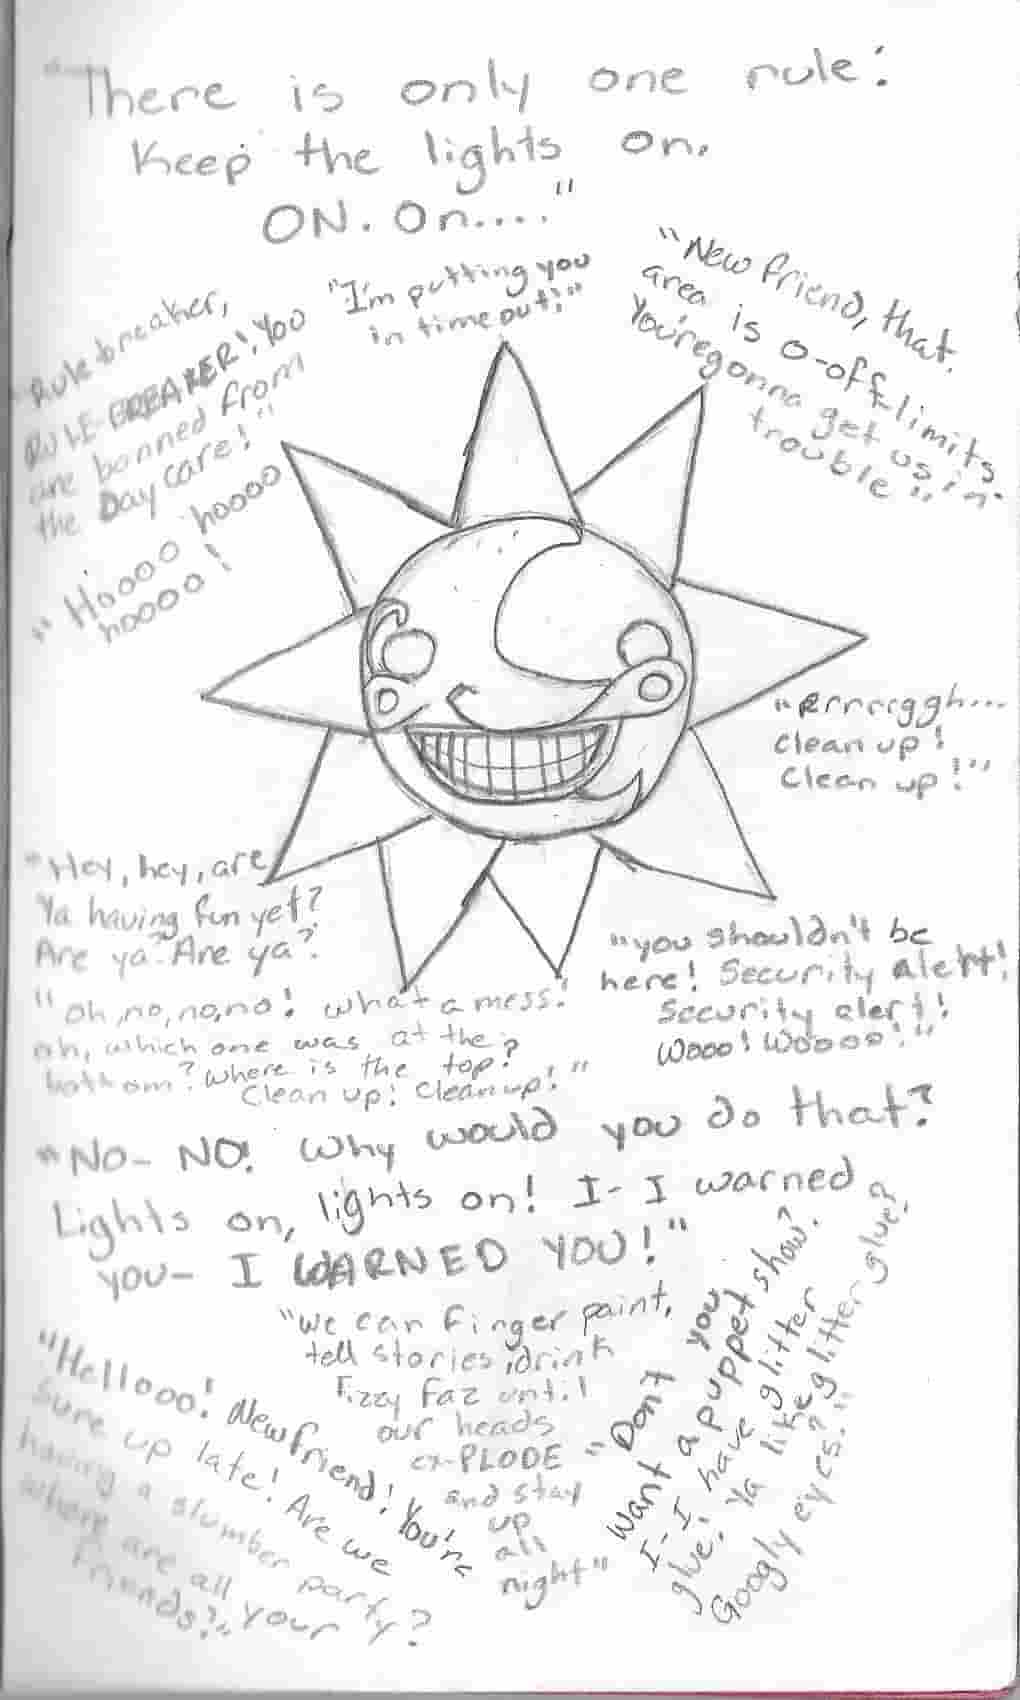 "There is only one rule:
Keep the lights on.
ON. On...."
"Rule breaker,
RULE-BREAKER! You
are banned from
the Daycare!"
"I'm putting you
in time out!"
"New friend, that
area is o-off-limits.
You're gonna get us in
trouble"
"Hoooo hoooo
hoooo!
"Rrrrrggh...
Clean up!
Clean up!"
"Hey, hey, are
Ya having fun yet?
Are ya? Are ya?
"you shouldn't be
here! Security alert!
Security alert!
Wooo! Woooo!"
"oh, no, no, no! what a mess!
oh, which one was at the
bottom? Where is the top?
Clean up! Clean up!"
"No- NO! Why would you do that?
Lights on, lights on! I- I warned
you- I WARNED YOU!"
"We can finger paint,
tell stories, drink
Fizzy Faz until
our heads
ex-PLODE
and stay
up
all
night"
"Hellooo! New friend! You're
Sure up late! Are we
having a slumber party?
where are all your
friends?"
"Don't you
want a puppet show?
I-I, have glitter
glue! Ya like glitter glue?
Googly eyes?"